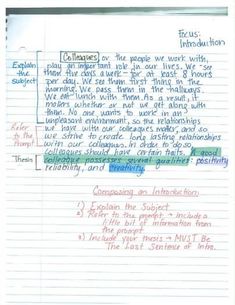 Focus:
Introduction
Explain
the
Subject
Colleagues, or the people we work with,
play an important role in our lives. We see
them five days a week - for at least 8 hours
per day. We see them first thing in the
morning. We pass them in the hallways.
We eat lunch with them. As a result, it
matters whether or not we get along with
them. No one wants to work in an
unpleasant environment, so the relationships
Refer
to the
Prompt
we have with our colleagues matter, and so
we strive to create long lasting relationships
with our colleagues. In order to do so,
colleagues should have certain traits. A good
Thesis
colleague possesses several qualities: positivity,
reliability, and creativity.
Composing an Introduction:
1) Explain the Subject
2) Refer to the prompt - Include a
little bit of information from
the prompt
3) Include your thesis → MUST Be
The Last Sentence of Intro.